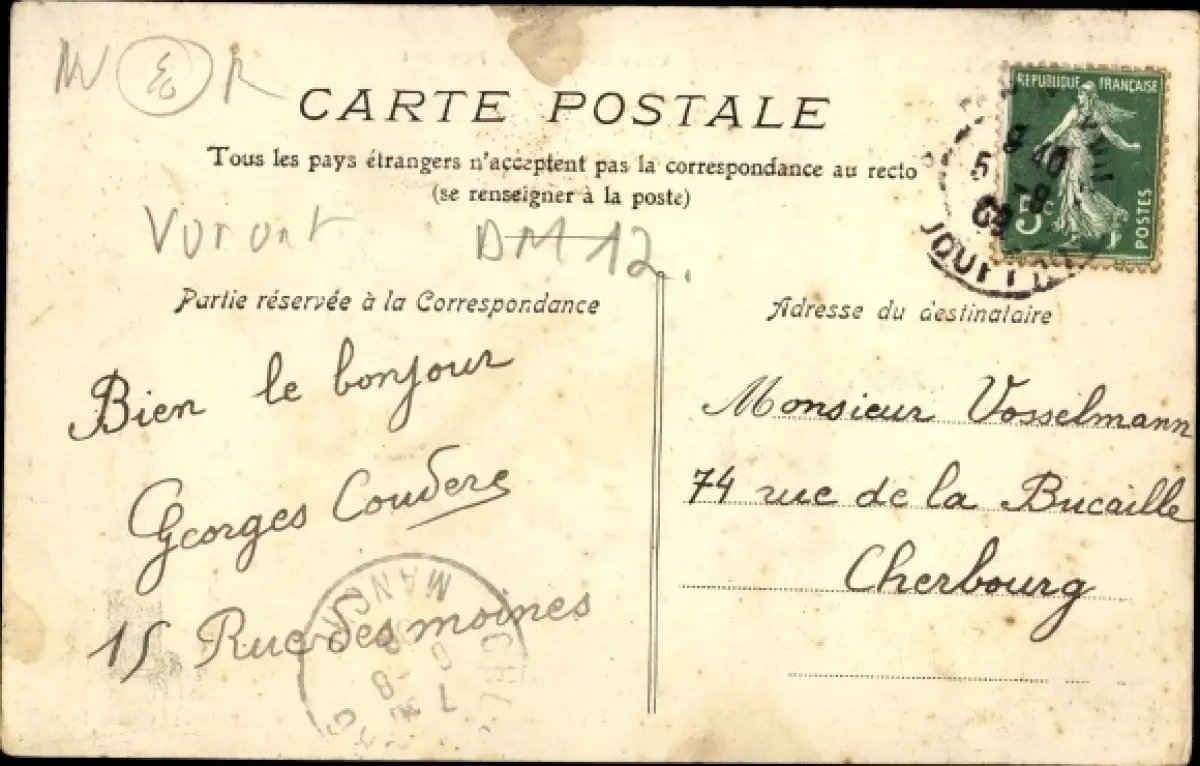 CARTE POSTALE
Tous les pays étrangers n'acceptent pas la correspondance au recto
(se renseigner à la poste)
REPUBLIQUE FRANÇAISE
5c
POSTES
DM 12.
Partie réservée à la Correspondance
Bien le bonjour
Georges Couderc
15 Rue des moines
MANCHE
7
8
Adresse du destinataire
Monsieur Vosselmann
74 rue de la Bucaille
Cherbourg